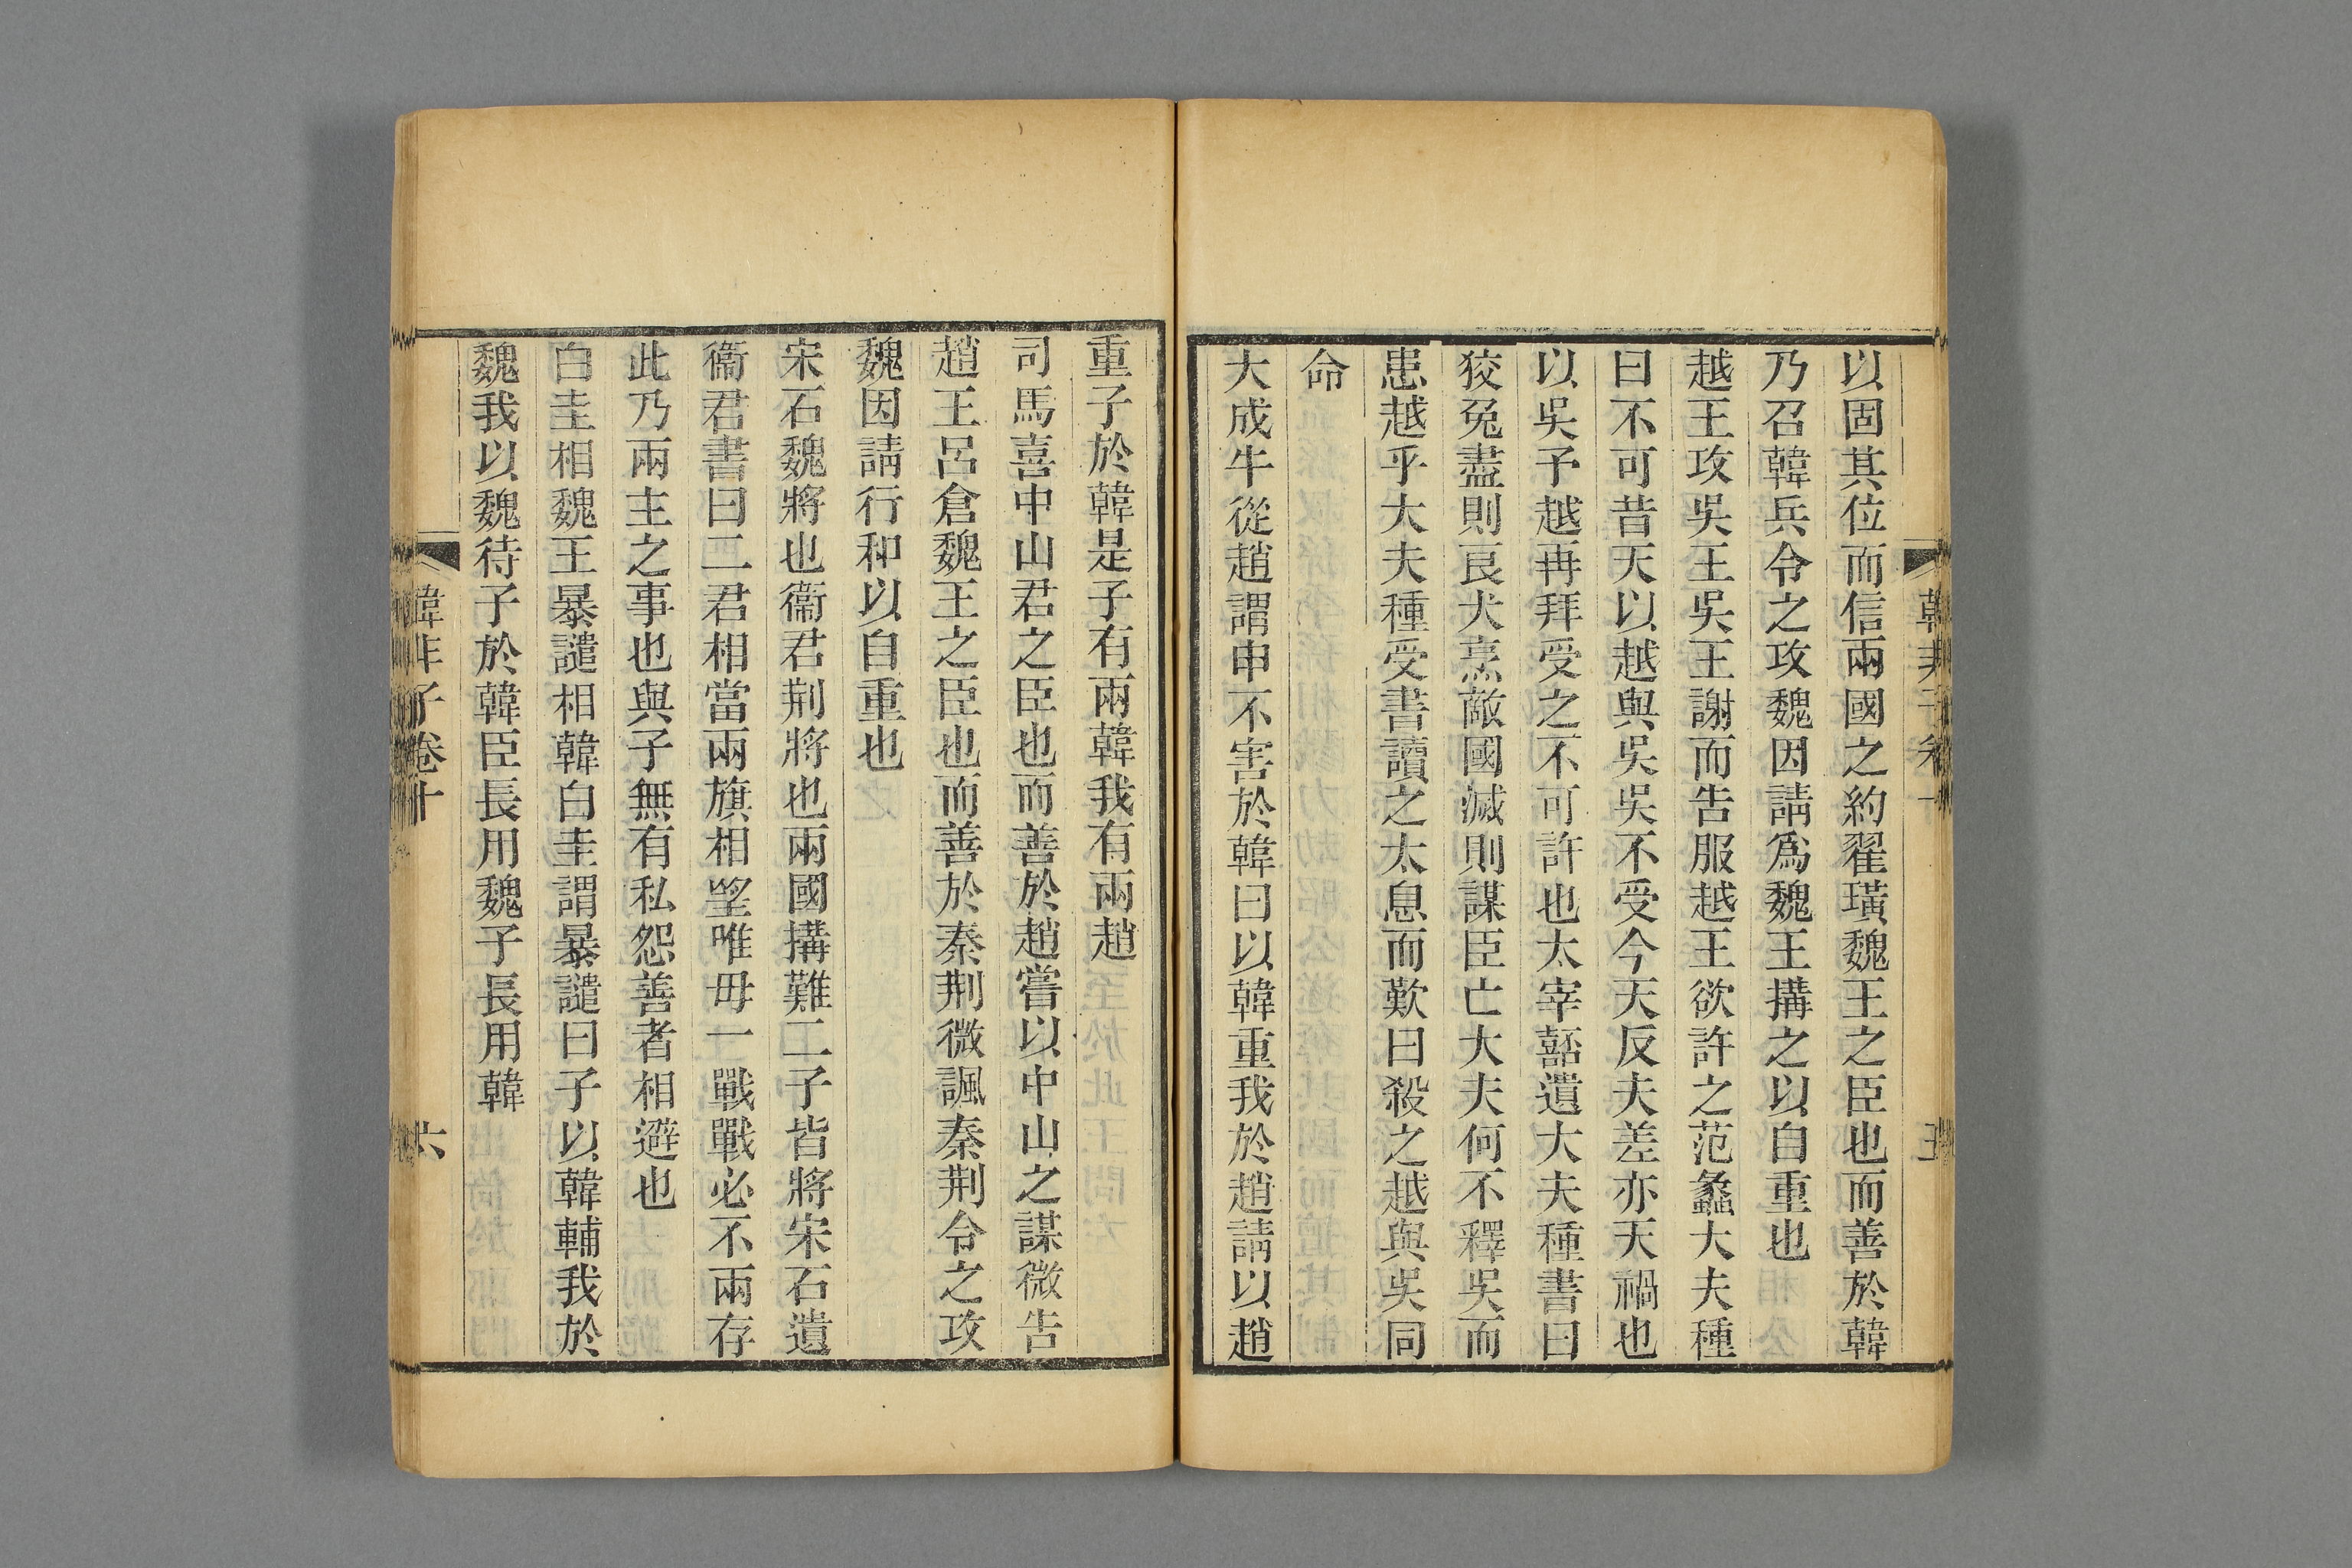 以固其位而信兩國之約翟璜魏王之臣也而善於韓
乃召韓兵令之攻魏因請爲魏王搆之以自重也
越王攻吳王吳王謝而告服越王欲許之范蠡大夫種
曰不可昔天以越與吳吳不受今天反夫差亦天禍也
以吳予越再拜受之不可許也太宰嚭遺大夫種書曰
狡兔盡則良犬烹敵國滅則謀臣亡大夫何不釋吳而
患越乎大夫種受書讀之太息而歎曰殺之越與吳同
命
大成牛從趙謂申不害於韓曰以韓重我於趙請以趙
重子於韓是子有兩韓我有兩趙
司馬喜中山君之臣也而善於趙嘗以中山之謀微告
趙王呂倉魏王之臣也而善於秦荆微諷秦荆令之攻
魏因請行和以自重也
宋石魏將也衞君荆將也兩國搆難二子皆將宋石遺
衞君書曰二君相當兩旗相望唯毋一戰戰必不兩存
此乃兩主之事也與子無有私怨善者相避也
白圭相魏王暴譴相韓白圭謂暴譴曰子以韓輔我於
魏我以魏待子於韓臣長用魏子長用韓
韓非子卷十
六